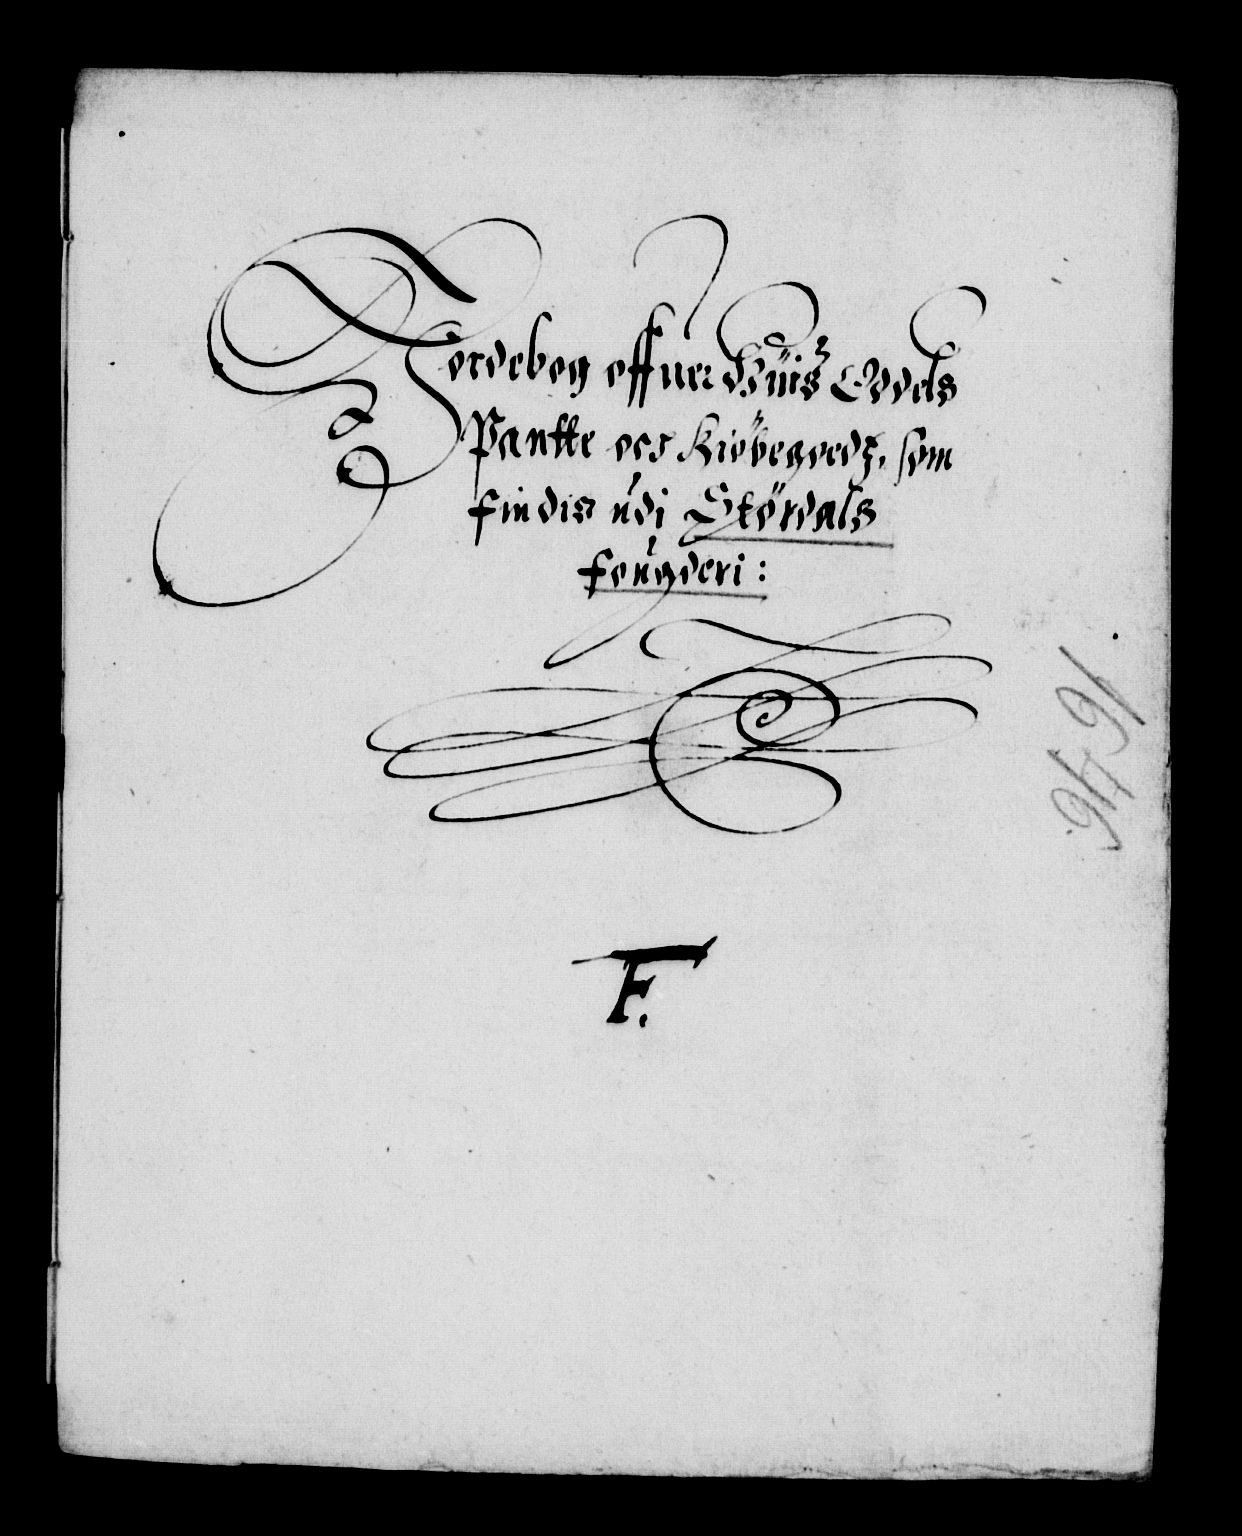 Jordebog offuer Huis Oddels
Pantte och Kiöbegoedz, som
findis udi Stördals
fougderi:
1646
F.